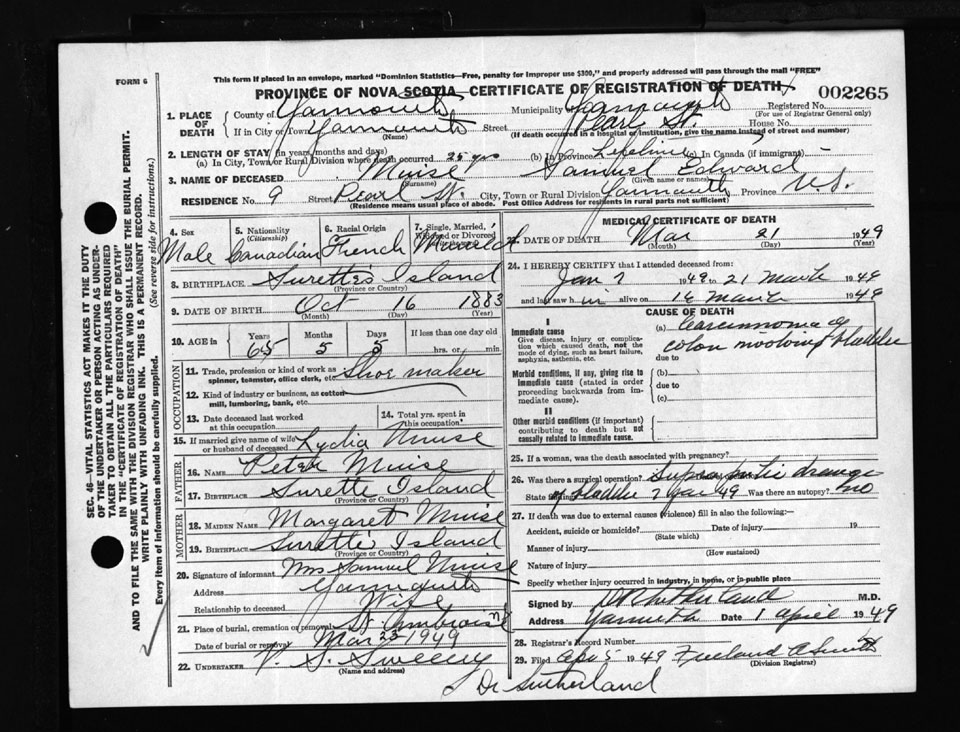 FORM 6
This form if placed in an envelope, marked "Dominion Statistics—Free, penalty for improper use $300," and properly addressed will pass through the mail "FREE"
PROVINE OF NOVA SCOTIA—CERTIFICATE OF REGISTRATION OF DEATH
002265
1. PLACE OF DEATH
County of Yarmouth Municipality of Yarmouth Registered No.
(For use of Registrar General only)
If in City or Town Yarmouth Street Pearl St. House No.
(Name) (If death occurred in a hospital or institution, give the name instead of street and number)
2. LENGTH OF STAY (in years, months and days)
(a) In City, Town or Rural Division where death occurred 25 yrs (b) In Province Lifetime (c) In Canada (if immigrant)
3. NAME OF DECEASED Muise Samuel Edward
(Surname) (Given name or names)
RESIDENCE No. 9 Street Pearl St. City, Town or Rural Division Yarmouth Province N.S.
(Residence means usual place of abode. Post Office Address for residents in rural parts not sufficient)
4. Sex 5. Nationality (Citizenship) 6. Racial Origin 7. Single, Married, Widowed or Divorced
Male Canadian French Married
8. BIRTHPLACE Surettes Island
(Province or Country)
9. DATE OF BIRTH Oct 16 1883
(Month) (Day) (Year)
10. AGE in Years Months Days If less than one day old
65 5 5 hrs. or min.
OCCUPATION
11. Trade, profession or kind of work as spinner, teamster, office clerk, etc. Shoe maker
12. Kind of industry or business, as cotton mill, lumbering, bank, etc.
13. Date deceased last worked at this occupation
14. Total yrs. spent in this occupation
15. If married give name of wife or husband of deceased Lydia Muise
FATHER
16. NAME Peter Muise
17. BIRTHPLACE Surette Island
(Province or Country)
MOTHER
18. MAIDEN NAME Margaret Muise
19. BIRTHPLACE Surettes Island
(Province or Country)
20. Signature of informant Mrs Samuel Muise
Address Yarmouth
Relationship to deceased Wife
21. Place of burial, cremation or removal St Ambroise
Date of burial or removal Mar 23 1949
22. UNDERTAKER V. S. Sweeny
(Name and address)
MEDICAL CERTIFICATE OF DEATH
DATE OF DEATH Mar 21 1949
(Month) (Day)
24. I HEREBY CERTIFY that I attended deceased from:
Jan 7 1949 to 21 March 1949
and last saw h im alive on 16 March 1949
CAUSE OF DEATH
I
Immediate cause
Give disease, injury or complication which caused death, not the mode of dying, such as heart failure, asphyxia, asthenia, etc.
(a) Carcinoma of
colon involving bladder
due to
Morbid conditions, if any, giving rise to immediate cause (stated in order proceeding backwards from immediate cause).
(b)
due to
(c)
II
Other morbid conditions (if important) contributing to death but not causally related to immediate cause.
25. If a woman, was the death associated with pregnancy?
26. Was there a surgical operation? Suprapubic drainage
State findings of bladder 7 Jan 49 Was there an autopsy? no
27. If death was due to external causes (violence) fill in also the following:—
Accident, suicide or homicide? Date of injury 19
(State which)
Manner of injury
(How sustained)
Nature of injury
Specify whether injury occurred in industry, in home, or in public place
Signed by Sutherland M.D.
Address Yarmouth Date 1 April 1949
28. Registrar's Record Number
29. Filed Apr 5 1949 Freeland A Smith
(Division Registrar)
Dr Sutherland
SEC. 46—VITAL STATISTICS ACT MAKES IT THE DUTY
OF THE UNDERTAKER OR PERSON ACTING AS UNDER-
TAKER TO OBTAIN ALL THE PARTICULARS REQUIRED
IN THE "CERTIFICATE OF REGISTRATION OF DEATH"
AND TO FILE THE SAME WITH THE DIVISION REGISTRAR WHO SHALL ISSUE THE BURIAL PERMIT.
WRITE PLAINLY WITH UNFADING INK. THIS IS A PERMANENT RECORD.
Every item of information should be carefully supplied. (See reverse side for instructions.)